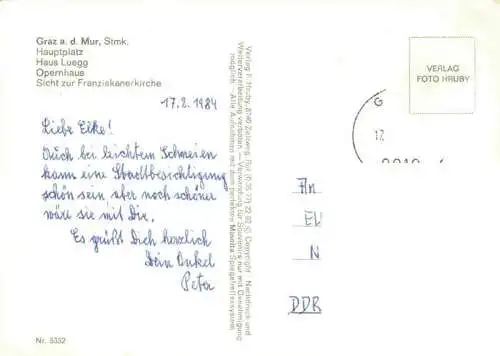 Graz a. d. Mur, Stmk.
Hauptplatz
Haus Luegg
Opernhaus
Sicht zur Franziskanerkirche
17.2.1984
Liebe Elke!
Auch bei leichtem Schneien
kann eine Stadtbesichtigung
schön sein, aber noch schöner
wäre sie mit Dir.
Es grüßt Dich herzlich
Dein Onkel
Peter
Nr. 5332
Verlag F. Hruby, 8740 Zeltweg, Ruf (0 35 77) 22 82 © Copyright - Nachdruck und
Weiterverarbeitung verboten - Verwendung für Souvenirs nur mit Genehmigung
möglich - Alle Aufnahmen mit dem perfekten Mamiya Spiegelreflexsystem
VERLAG
FOTO HRUBY
G
17.
An
EL
N
DDR